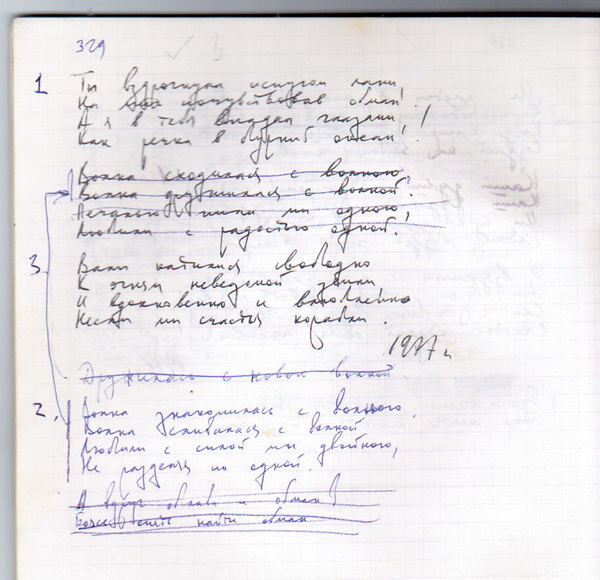 329
1 Ты вздрогнула испугом лани
На почувствовав обман!
А я в тебя впадал глазами, !
Как речка в бурный океан!
Волна сходилась с волною,
Волна дружилась с волной.
Печалью жили мы одною,
Любили с радостью одной.
3. Валы катились свободно
К огням неведомой земли
И вдохновенно и
Несли мы счастья корабли.
1977 г.
Дружилась с новой волной
2. Волна знакомилась с волною.
Волна сшибалась с волной
Любили с силой мы двойною,
Не разделяя по одной.
А вдруг и обман
найти обман